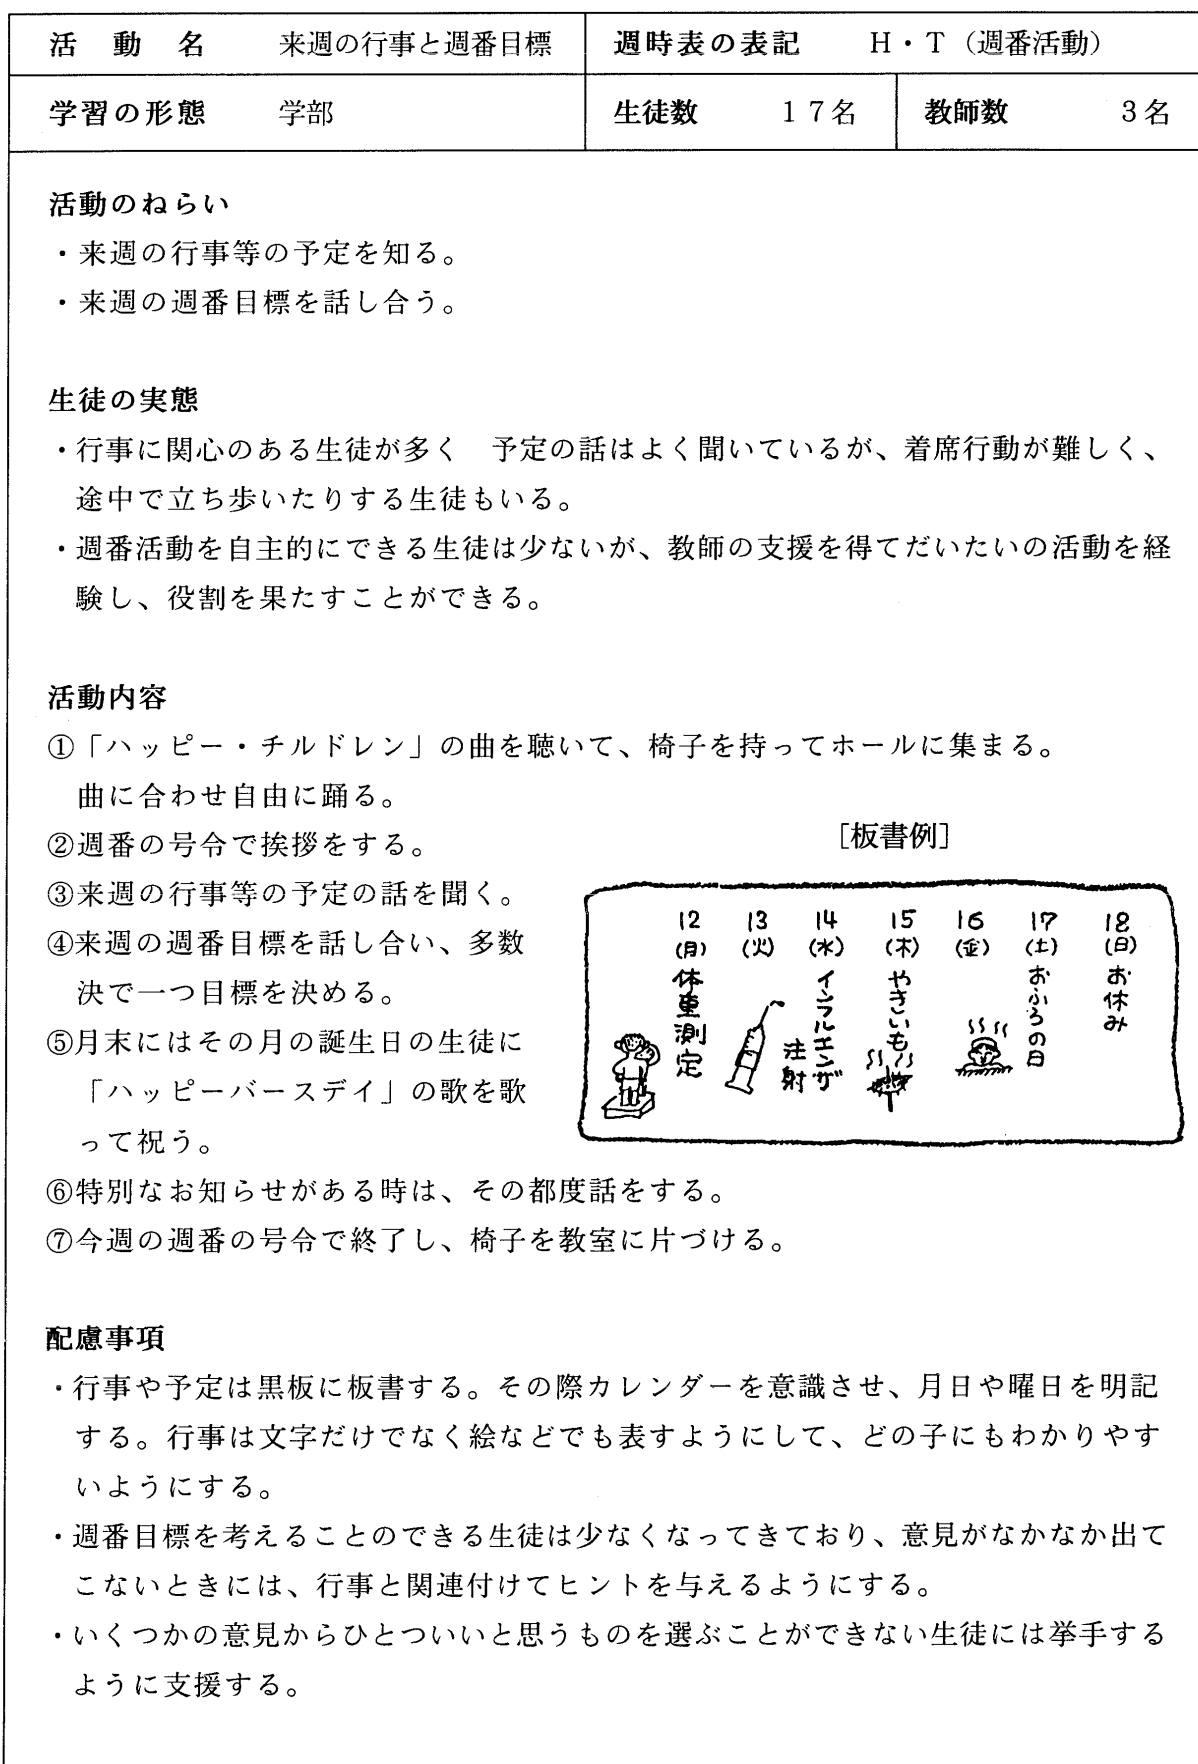 活動名　来週の行事と週番目標　週時表の表記　H・T（週番活動）
学習の形態　学部　生徒数　１７名　教師数　３名
活動のねらい
・来週の行事等の予定を知る。
・来週の週番目標を話し合う。
生徒の実態
・行事に関心のある生徒が多く　予定の話はよく聞いているが、着席行動が難しく、
途中で立ち歩いたりする生徒もいる。
・週番活動を自主的にできる生徒は少ないが、教師の支援を得てだいたいの活動を経
験し、役割を果たすことができる。
活動内容
①「ハッピー・チルドレン」の曲を聴いて、椅子を持ってホールに集まる。
曲に合わせ自由に踊る。
②週番の号令で挨拶をする。
③来週の行事等の予定の話を聞く。
④来週の週番目標を話し合い、多数
決で一つ目標を決める。
⑤月末にはその月の誕生日の生徒に
「ハッピーバースデイ」の歌を歌
って祝う。
［板書例］
12 13 14 15 16 17 18
(月) (火) (水) (木) (金) (土) (日)
体重測定
インフルエンザ
注射
やきいも
おふろの日
お休み
⑥特別なお知らせがある時は、その都度話をする。
⑦今週の週番の号令で終了し、椅子を教室に片づける。
配慮事項
・行事や予定は黒板に板書する。その際カレンダーを意識させ、月日や曜日を明記
する。行事は文字だけでなく絵などでも表すようにして、どの子にもわかりやす
いようにする。
・週番目標を考えることのできる生徒は少なくなってきており、意見がなかなか出て
こないときには、行事と関連付けてヒントを与えるようにする。
・いくつかの意見からひとついいと思うものを選ぶことができない生徒には挙手する
ように支援する。